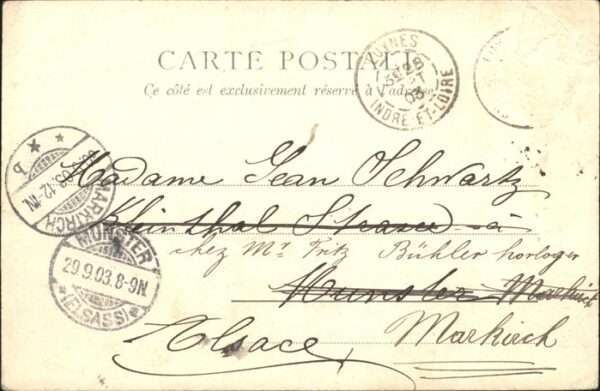 CARTE POSTALE
Ce côté est exclusivement réservé à l'adresse
LUYNES
28
03
INDRE-ET-LOIRE
MARKIRCH
03.12-1N
b
Madame Jean Schwartz
Kleinthal Strasse à
chez Mr Fritz Bühler horloger
Munster Markirch
Alsace, Markirch
MÜNSTER
29.9.03.8-9N
(ELSASS)